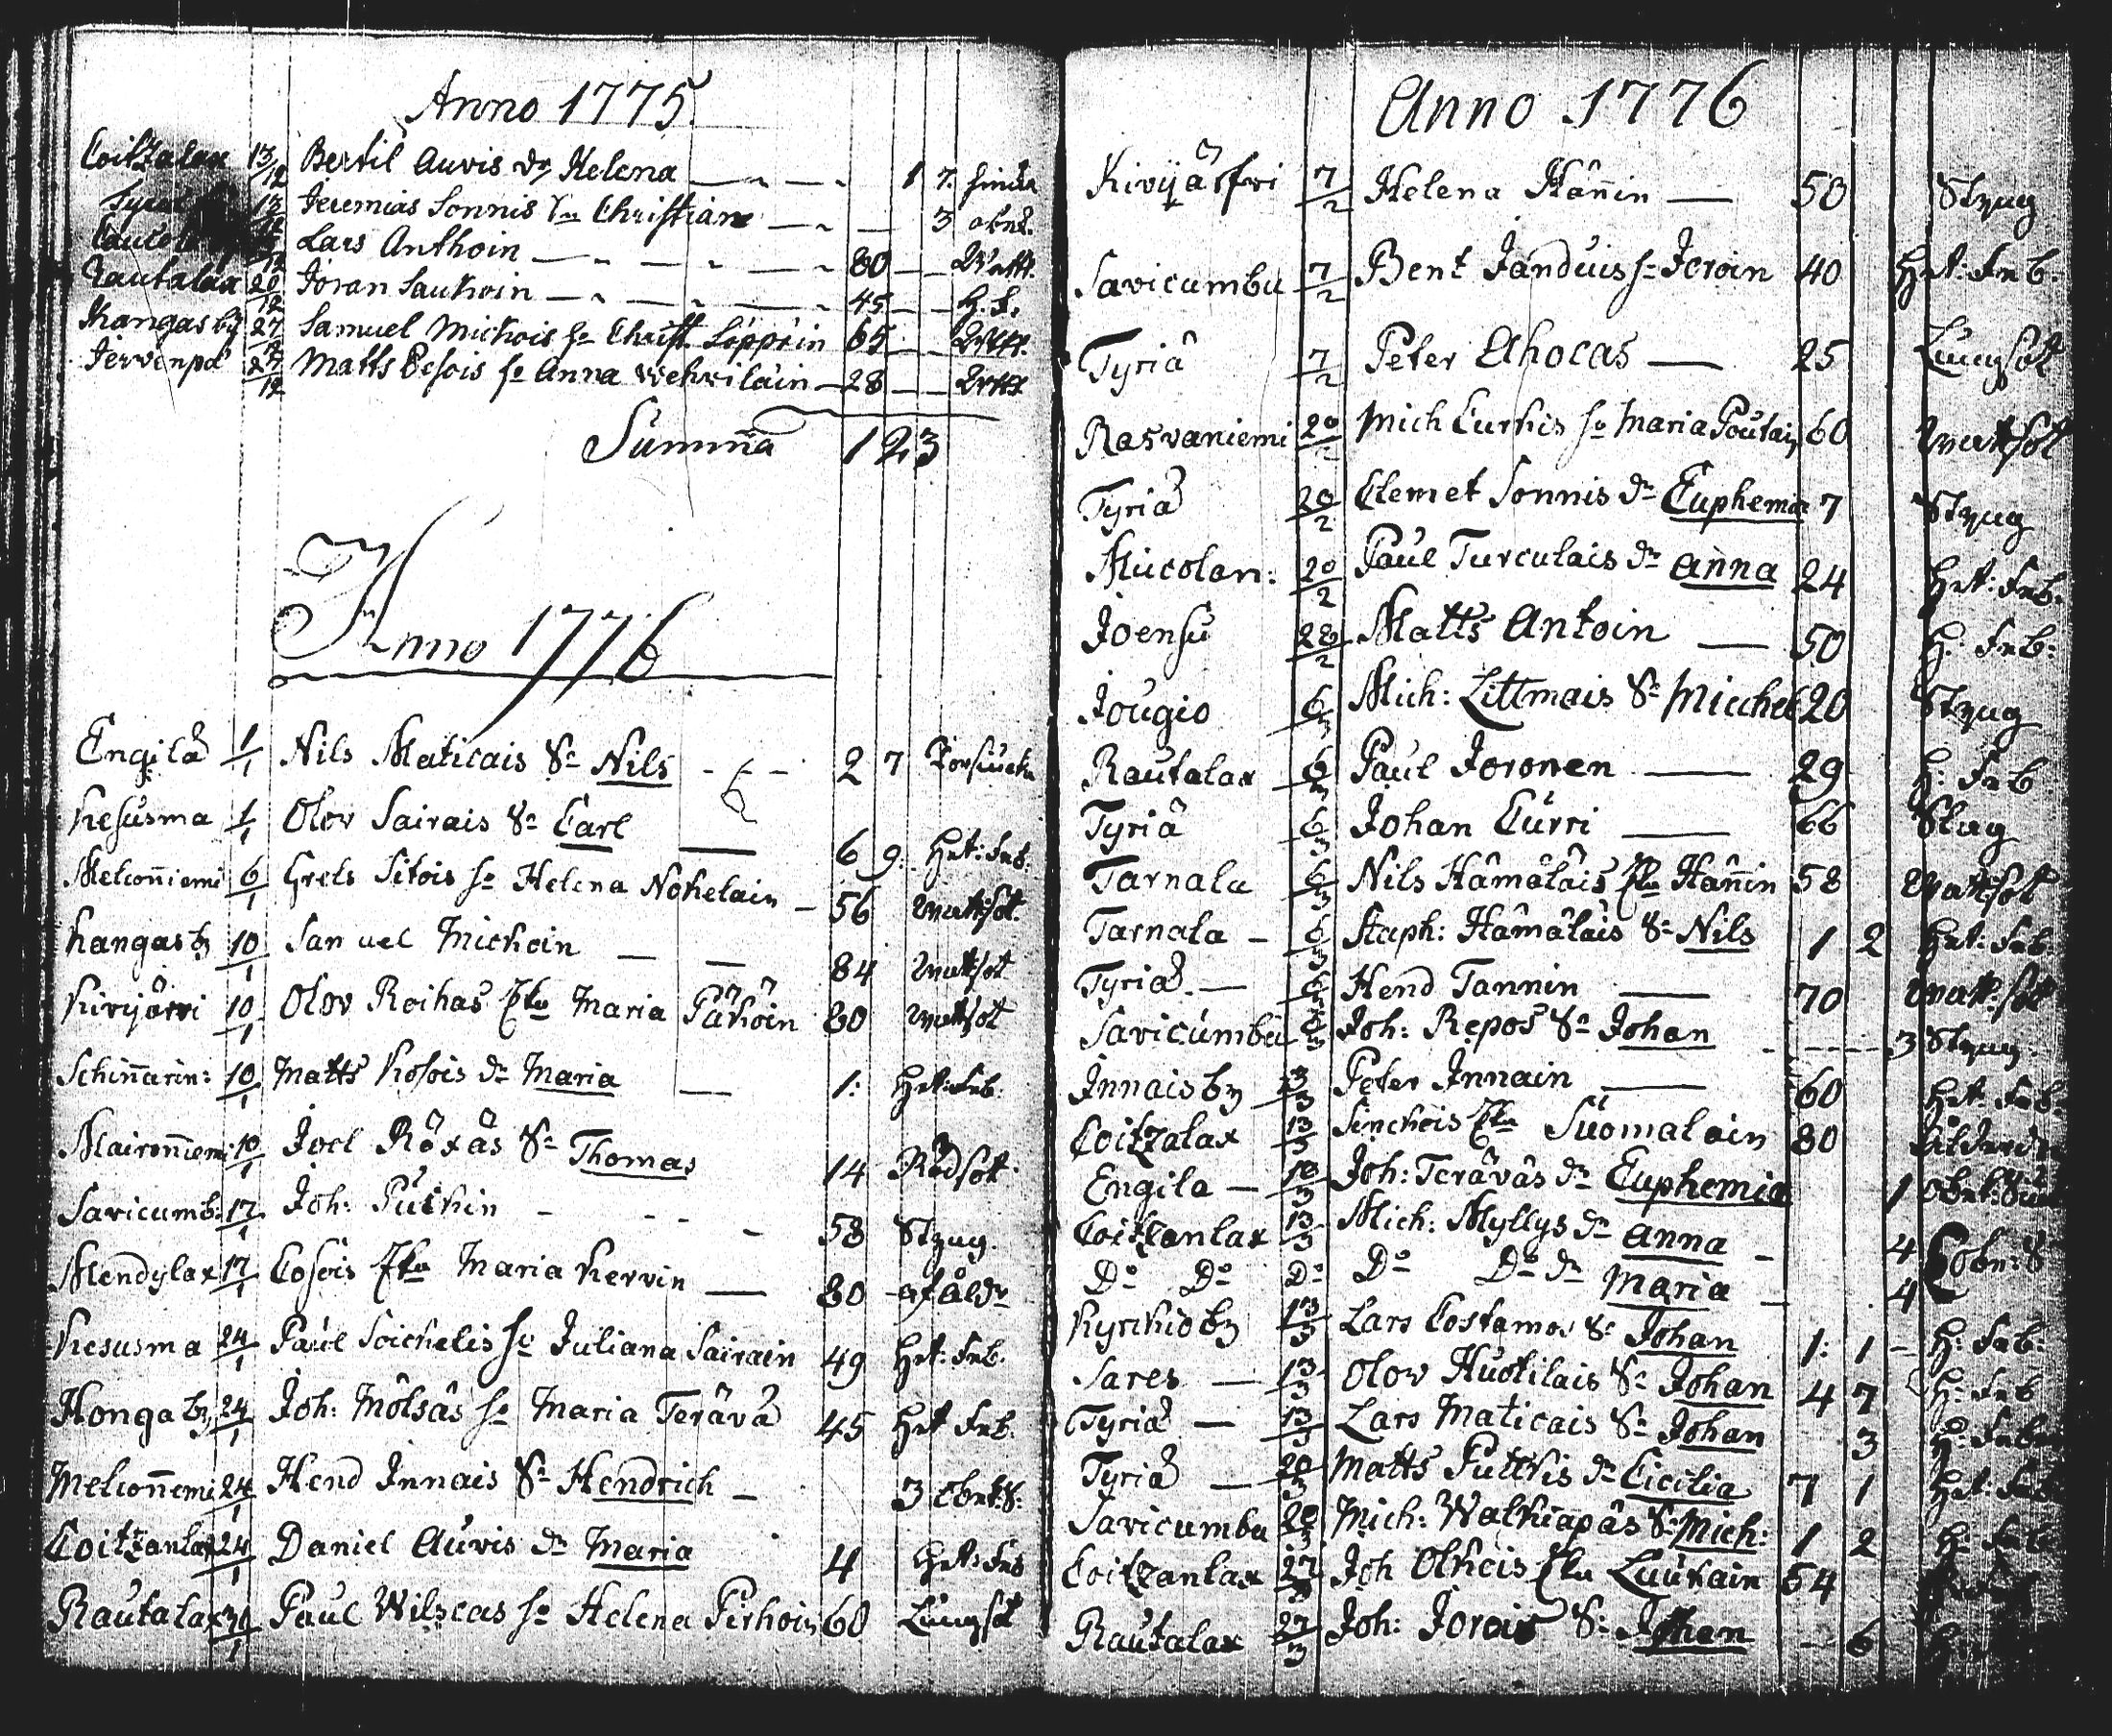 Anno 1775
Coitzalax 13/12 Bertil Auvis dr Helena 1 7.
13/12 Jeremias Sonnis Christian 3
Lars Anthoin 80
Rautalax 20/12 Joran Saukoin 45 H. f.
Kangas by 27/12 Samuel Michois h. Christ Löppöin 65
Jervenpä 27/12 Matts Pesois h. Anna Wehviläin 28
Summa 123
Anno 1776
Engilä 1/1 Nils Maticais S. Nils 2 7
Kesusma 1/1 Olov Sairais S. Carl 6 9. Het: Feb:
Melconniemi 6/1 Grels Sitois h. Helena Nohelain 56 Wattsot.
Kangas by 10/1 Samuel Michoin 84 Wattsot
Kivijärvi 10/1 Olov Roihas Maria Päköin 80 Wattsot
Schinnarin: 10/1 Matts Kosois dr Maria 1: Het: Feb.
Maironniem: 10/1 Joel Röxäs S. Thomas 14 Rödsot
Savicumb: 17/1 Joh: Putkin 58 Styng.
Mendylax 17/1 Cosois Maria Kervin 80 af åldr
Kesusma 24/1 Paul Soickelis h. Juliana Sairain 49 Het: Feb.
Honga by 24/1 Joh: Mölsäs h. Maria Terävä 45 Het Feb.
Melconnemi 24/1 Hend Innais S. Hendrich 3 Obek: S:
Coitzanlax 24/1 Daniel Auvis dr Maria 4 Het: Feb
Rautalax 30/1 Paul Wilscas h. Helena Pirhoin 60 Lungsot
Anno 1776
Kivijärfvi 7/2 Helena Hännin 50 Styng
Savicumbu 7/2 Bent Jänduis h. Joroin 40 Het: Feb.
Tyriä 7/2 Peter Ahocas 25 Lungsot
Rasvaniemi 20/2 Mich Curkis h. Maria Poutain 60 Wattsot
Tyriä 20/2 Clemet Sonnis dr Euphemia 7 Styng
Mucolan: 20/2 Paul Turculais dr Anna 24 Het: Feb.
Joensu 28/2 Matts Antoin 50 H. Feb:
Jougio 6/3 Mich: Littmais S. Micchel 20 Styng
Rautalax 6/3 Paul Joronen 29 H: Feb
Tyriä 6/3 Johan Curri 66 Slag
Tarnala 6/3 Nils Hämäläis Hännin 58 Wattsot
Tarnala 6/3 Staph: Hämäläis S. Nils 1 2 Het: Feb:
Tyriä 6/3 Hend Tannin 70 Watt: sot
Savicumbu 6/3 Joh: Repos S. Johan 3 Styng.
Innais by 13/3 Peter Innain 60 Het: Feb:
Coitzalax 13/3 Sinckois Suomalain 80
Engila 13/3 Joh: Teräväs dr Euphemia 1
Coitzanlax 13/3 Mich: Myllys dr Anna 4
Do Do Do Do Do dr Maria 4
Kyrckio by 13/3 Lars Costamos S. Johan 1: 1 H: Feb:
Sares 13/3 Olov Huotilais S. Johan 4 7 H: Feb
Tyriä 13/3 Lars Maticais S. Johan 3 H: Feb
Tyriä 20/3 Matts Puttkis dr Cicilia 7 1 Het: Feb
Savicumbu 20/3 Mich: Walkiapäs S. Mich: 1 2 H: Feb
Coitzanlax 27/3 Joh Olkois Luukain 54
Rautalax 27/3 Joh: Jorois S. Johan 6 H: